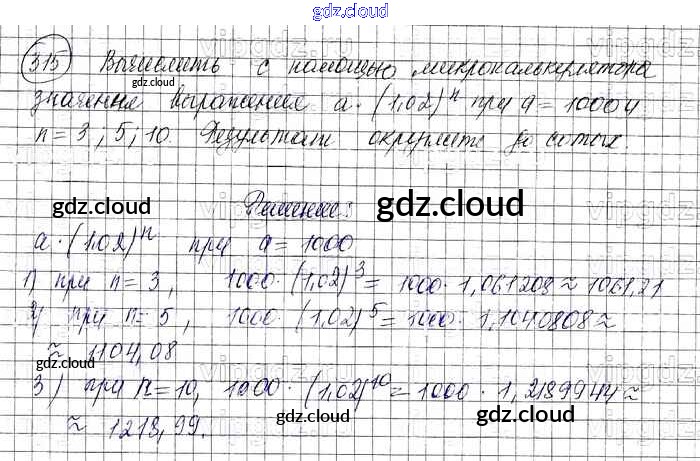 gdz.cloud
315 Вычислить с помощью микрокалькулятора
gdz.cloud
значения выражения a·(1,02)ⁿ при a = 1000 и
n = 3; 5; 10. Результат округлите до сотых.
Решение:
gdz.cloud gdz.cloud
a·(1,02)ⁿ при a = 1000
1) при n = 3, 1000·(1,02)³ = 1000·1,061208 ≈ 1061,21
gdz.cloud gdz.cloud
2) при n = 5, 1000·(1,02)⁵ = 1000·1,1040808 ≈
≈ 1104,08
gdz.cloud gdz.cloud
3) при n = 10, 1000·(1,02)¹⁰ = 1000·1,2189944 ≈
≈ 1218,99.
gdz.cloud gdz.cloud
gdz.cloud